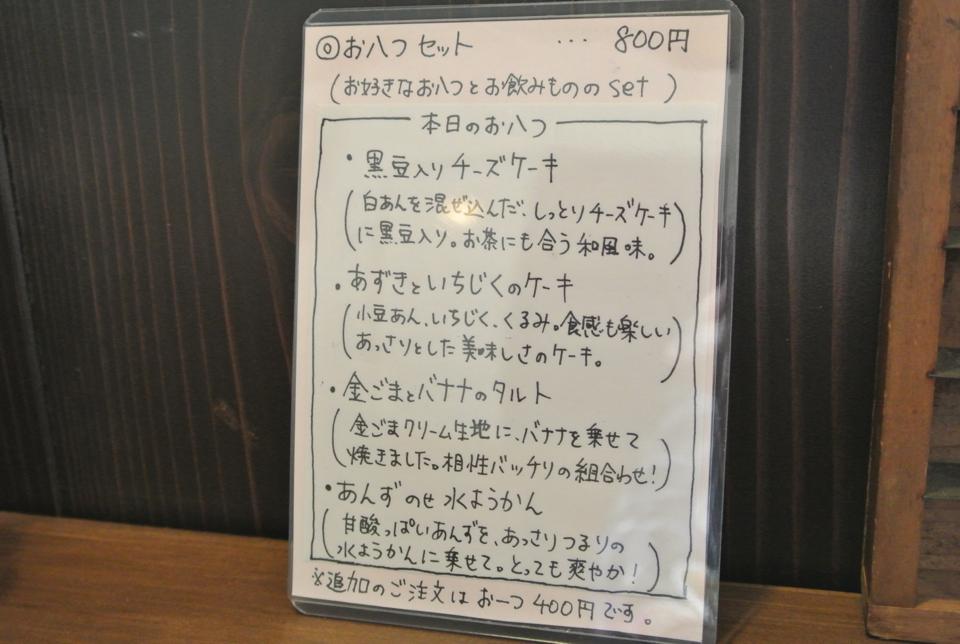 ◎お八つセット … 800円
(お好きなお八つとお飲みもののset)
本日のお八つ
・黒豆入りチーズケーキ
(白あんを混ぜ込んだ、しっとりチーズケーキ
に黒豆入り。お茶にも合う和風味。)
・あずきといちじくのケーキ
(小豆あん、いちじく、くるみ。食感も楽しい
あっさりとした美味しさのケーキ。)
・金ごまとバナナのタルト
(金ごまクリーム生地に、バナナを乗せて
焼きました。相性バッチリの組合わせ!)
・あんずのせ水ようかん
(甘酸っぱいあんずを、あっさりつるりの
水ようかんに乗せて。とっても爽やか!)
※追加のご注文はお一つ400円です。